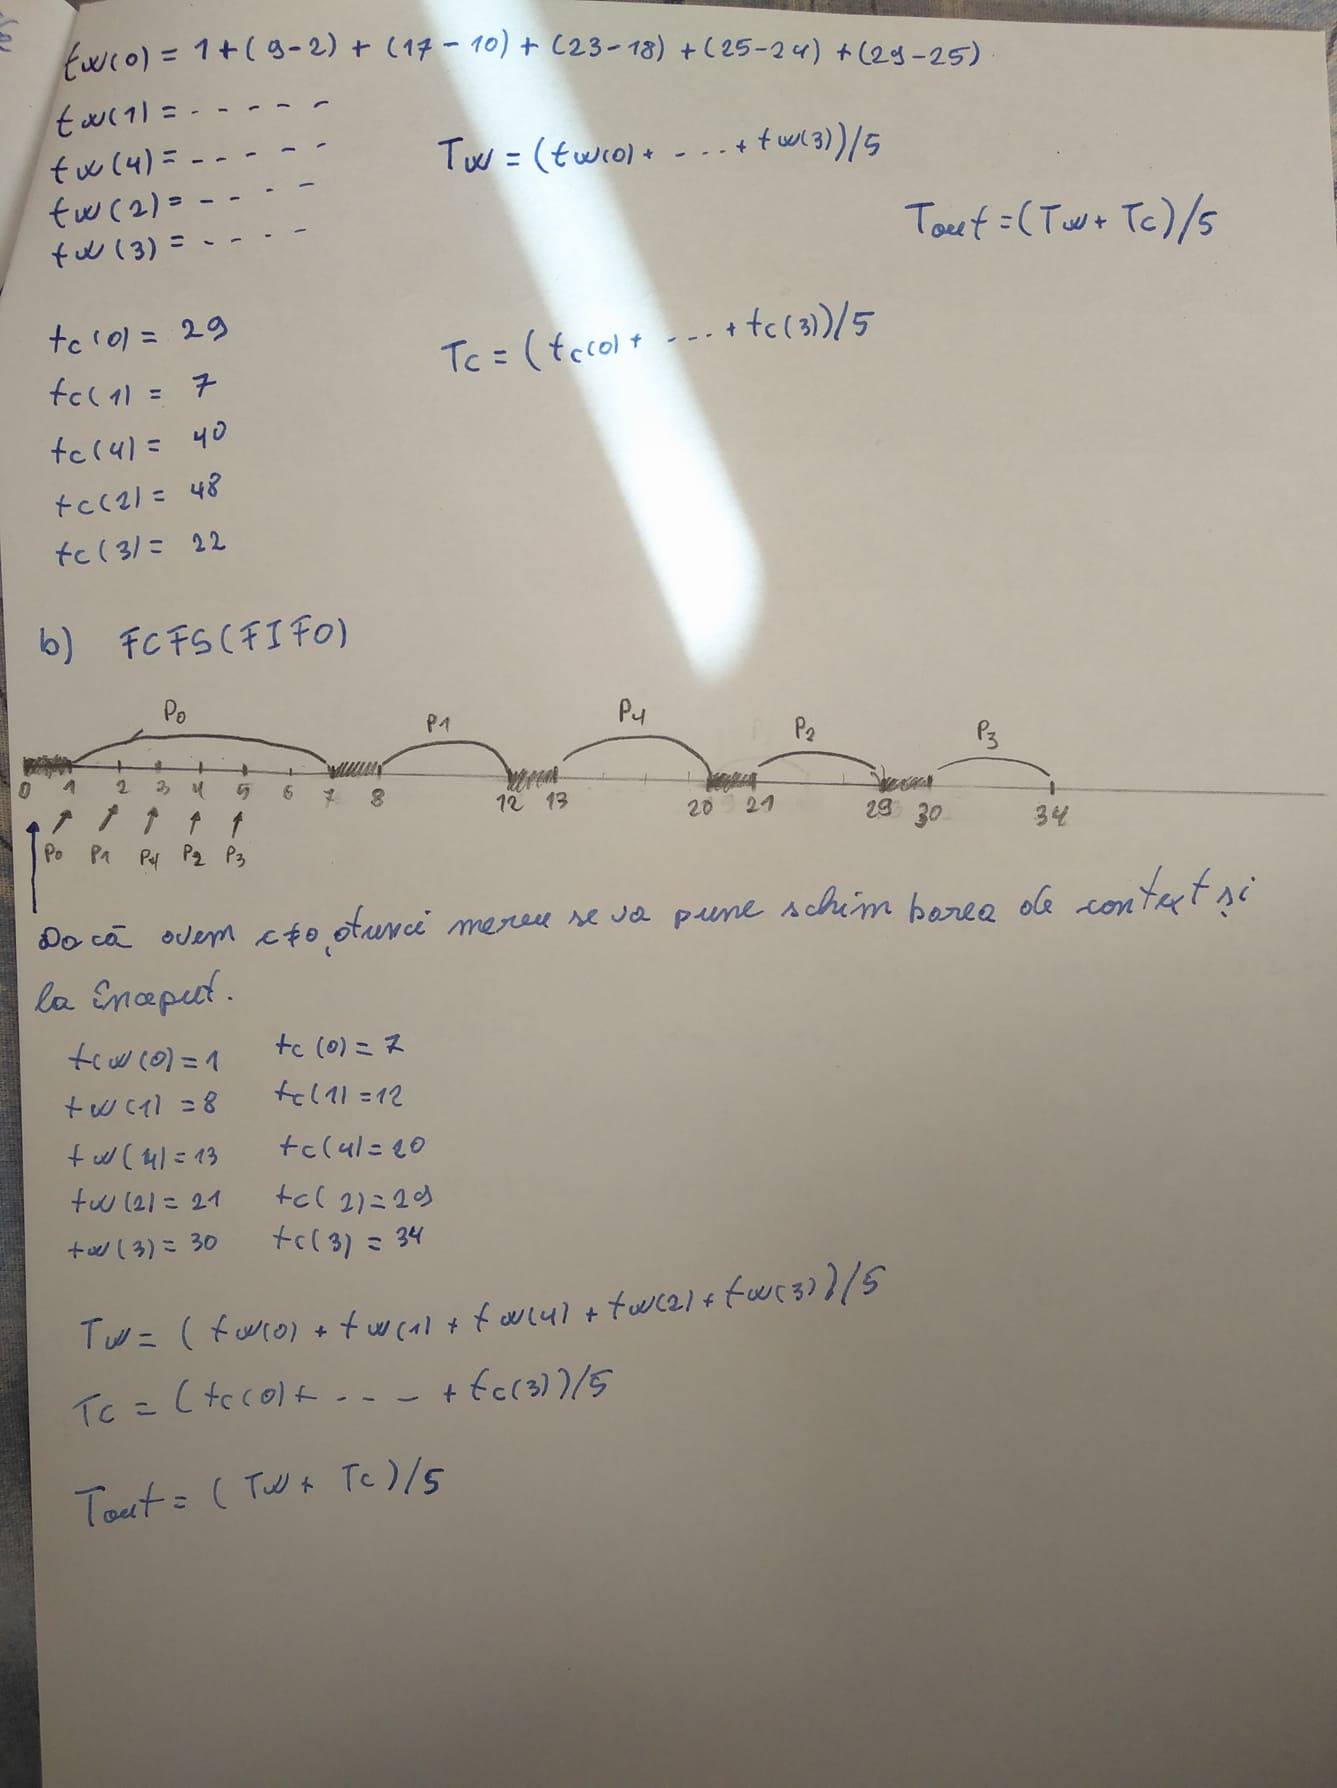 tw(0) = 1+(9-2) + (17-10) + (23-18) + (25-24) + (29-25)
tw(1) = - - - - -
tw(4) = - - - - -
Tw = (tw(0) + - ... + tw(3))/5
tw(2) = - - - -
Tout = (Tw + Tc)/5
tw(3) = - - - -
tc(0) = 29
Tc = (tc(0) + - ... + tc(3))/5
tc(1) = 7
tc(4) = 40
tc(2) = 48
tc(3) = 22
b) FCFS(FIFO)
P0 P1 P4 P2 P3
0 1 2 3 4 5 6 7 8 12 13 20 21 29 30 34
P0 P1 P4 P2 P3
Dacă avem c≠0, atunci mereu se va pune schimbarea de context și
la început.
tcw(0) = 1 tc(0) = 7
tw(1) = 8 tc(1) = 12
tw(4) = 13 tc(4) = 20
tw(2) = 21 tc(2) = 29
tw(3) = 30 tc(3) = 34
Tw = (tw(0) + tw(1) + tw(4) + tw(2) + tw(3))/5
Tc = (tc(0) + - - - + tc(3))/5
Tout = (Tw + Tc)/5